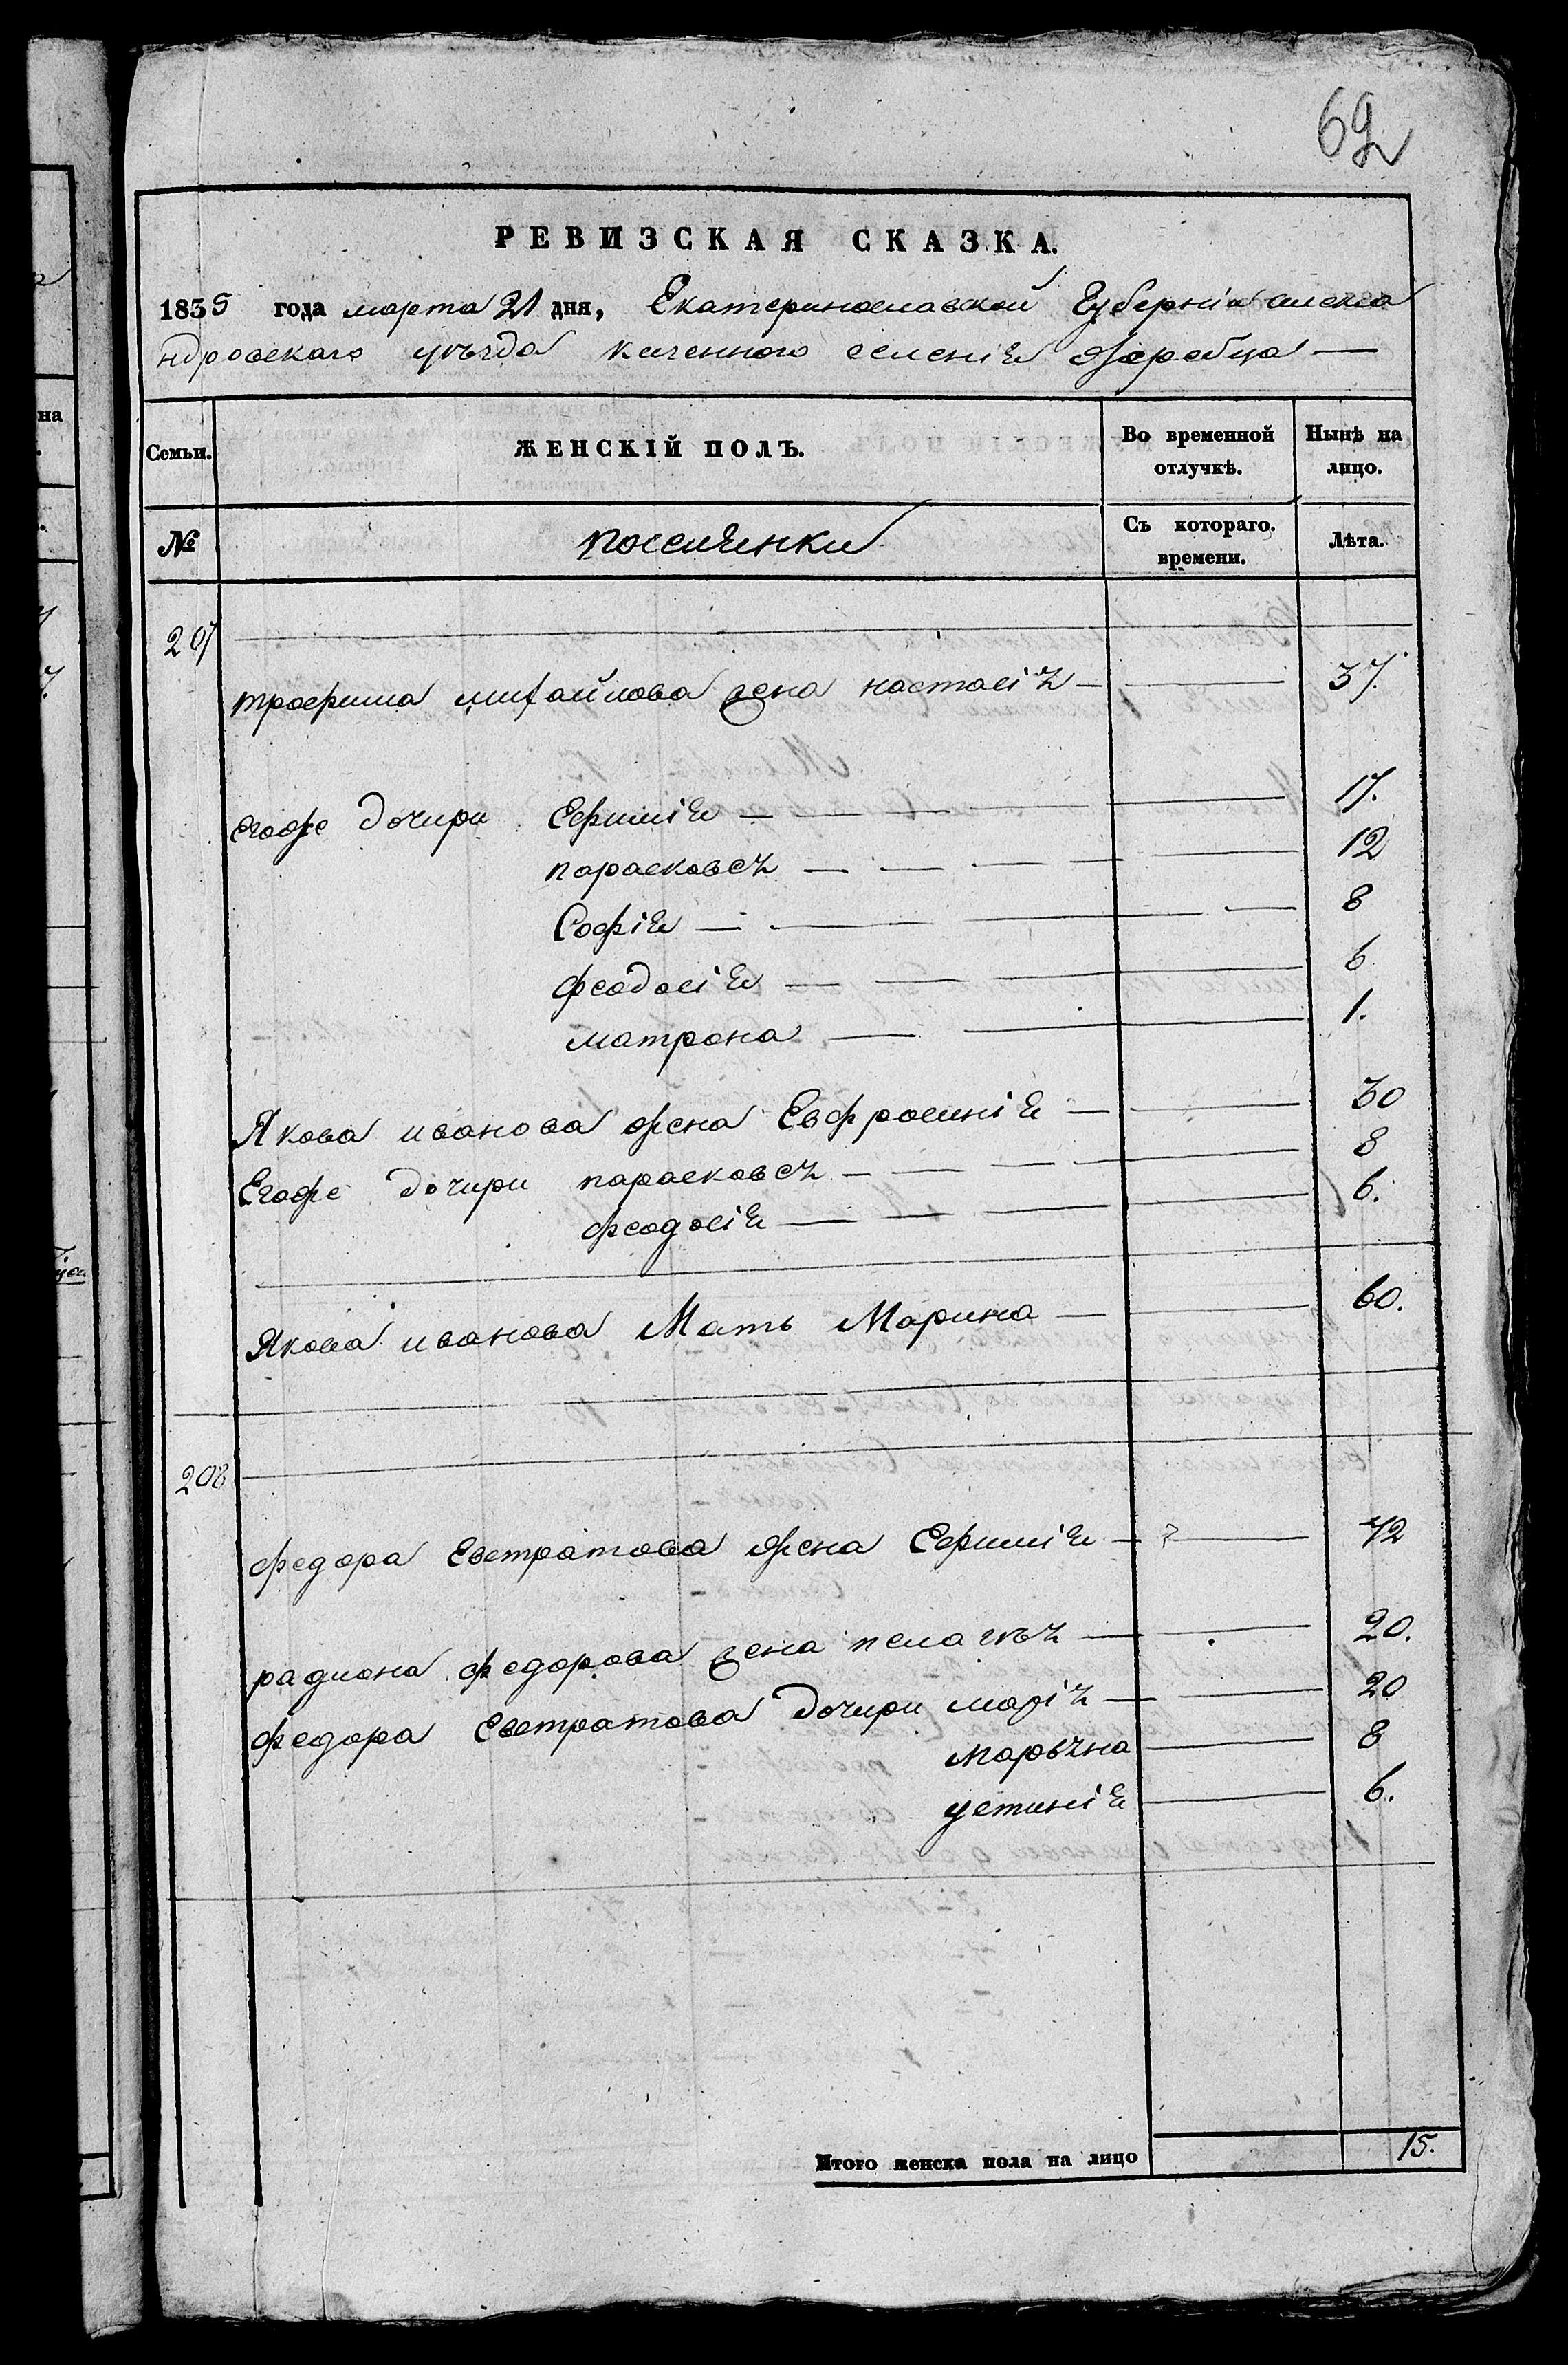 62
РЕВИЗСКАЯ СКАЗКА.
1835 года марта 21 дня, Екатеринославской Губерніи алекса
ндровскаго уезда казенного селенія Жеребца —
Семьи. ЖЕНСКІЙ ПОЛЪ. Во временной отлучкѣ. Нынѣ на лицо.
№ поселянки Съ котораго. времени. Лѣта.
207
трофима михайлова жена настасія — 37.
Егоже дочири Ефимія — 17.
парасковея — 12
Софія — 8
феодосія — 6
матрона — 1.
Якова иванова жена Евфросинія — 30
Егоже дочири парасковея — 8
феодосія — 6.
Якова иванова Мать Марина — 60.
208
федора Евстратова жена Ефимія — 42
радиона федорова жена пелагея — 20.
федора Евстратова дочири марія — 20
маряна 8
устинія 6.
Итого женска пола на лицо 15.